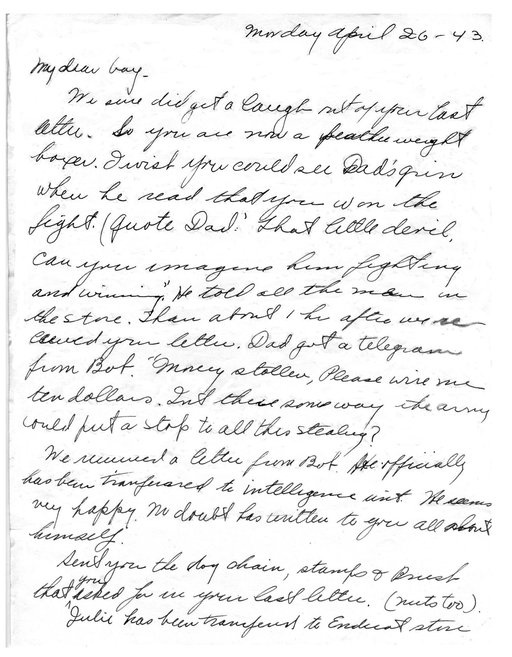 Monday April 26-43.
My dear boy-
We sure did get a laugh out of your last
letter. So you are now a featherweight
boxer. I wish you could see Dad's grin
when he read that you won the
fight. (Quote Dad: "that little devil,
can you imagine him fighting
and winning." He told all the men in
the store. Than about 1 hr after we re-
ceived your letter. Dad got a telegram
from Bob. "Money stollen, Please wire me
ten dollars. Isnt there some way the army
could put a stop to all this stealing?
We received a letter from Bob. He officially
has been transferred to intelligence unit. He seems
very happy. No doubt has written to you all about
himself.
Sent you the dog chain, stamps & Brush
that you asked for in your last letter. (nuts too).
Julie has been transferred to Endicot store